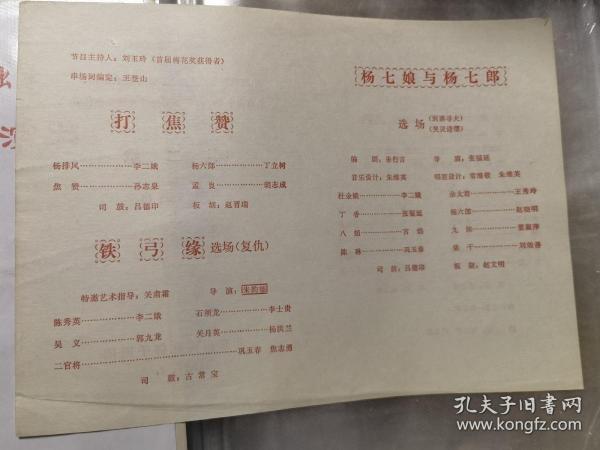 节目主持人：刘玉玲（首届梅花奖获得者）
串场词编定：王登山
打焦赞
杨排风………李二娥 杨六郎………丁立树
焦赞………孙志泉 孟良………胡志成
司鼓：吕德印 板胡：赵晋瑞
铁弓缘 选场（复仇）
特邀艺术指导：关肃霜 导演：
陈秀英………李二娥 石须龙………李士贵
吴义………郭九龙 关月英………杨洪兰
二官将………巩玉春 焦志勇
司鼓：古常宝
杨七娘与杨七郎
选场
编剧：张行言 导演：张骏延
音乐设计：朱维英 唱腔设计：常增敬 朱维英
杜金娥………李二娥 佘太君………王秀玲
丁香………张骏延 杨六郎………赵晓明
八姐 九妹
陈琳………巩玉春 柴干
司鼓：吕德印 板胡：赵文明
孔夫子旧书网
www.kongfz.com